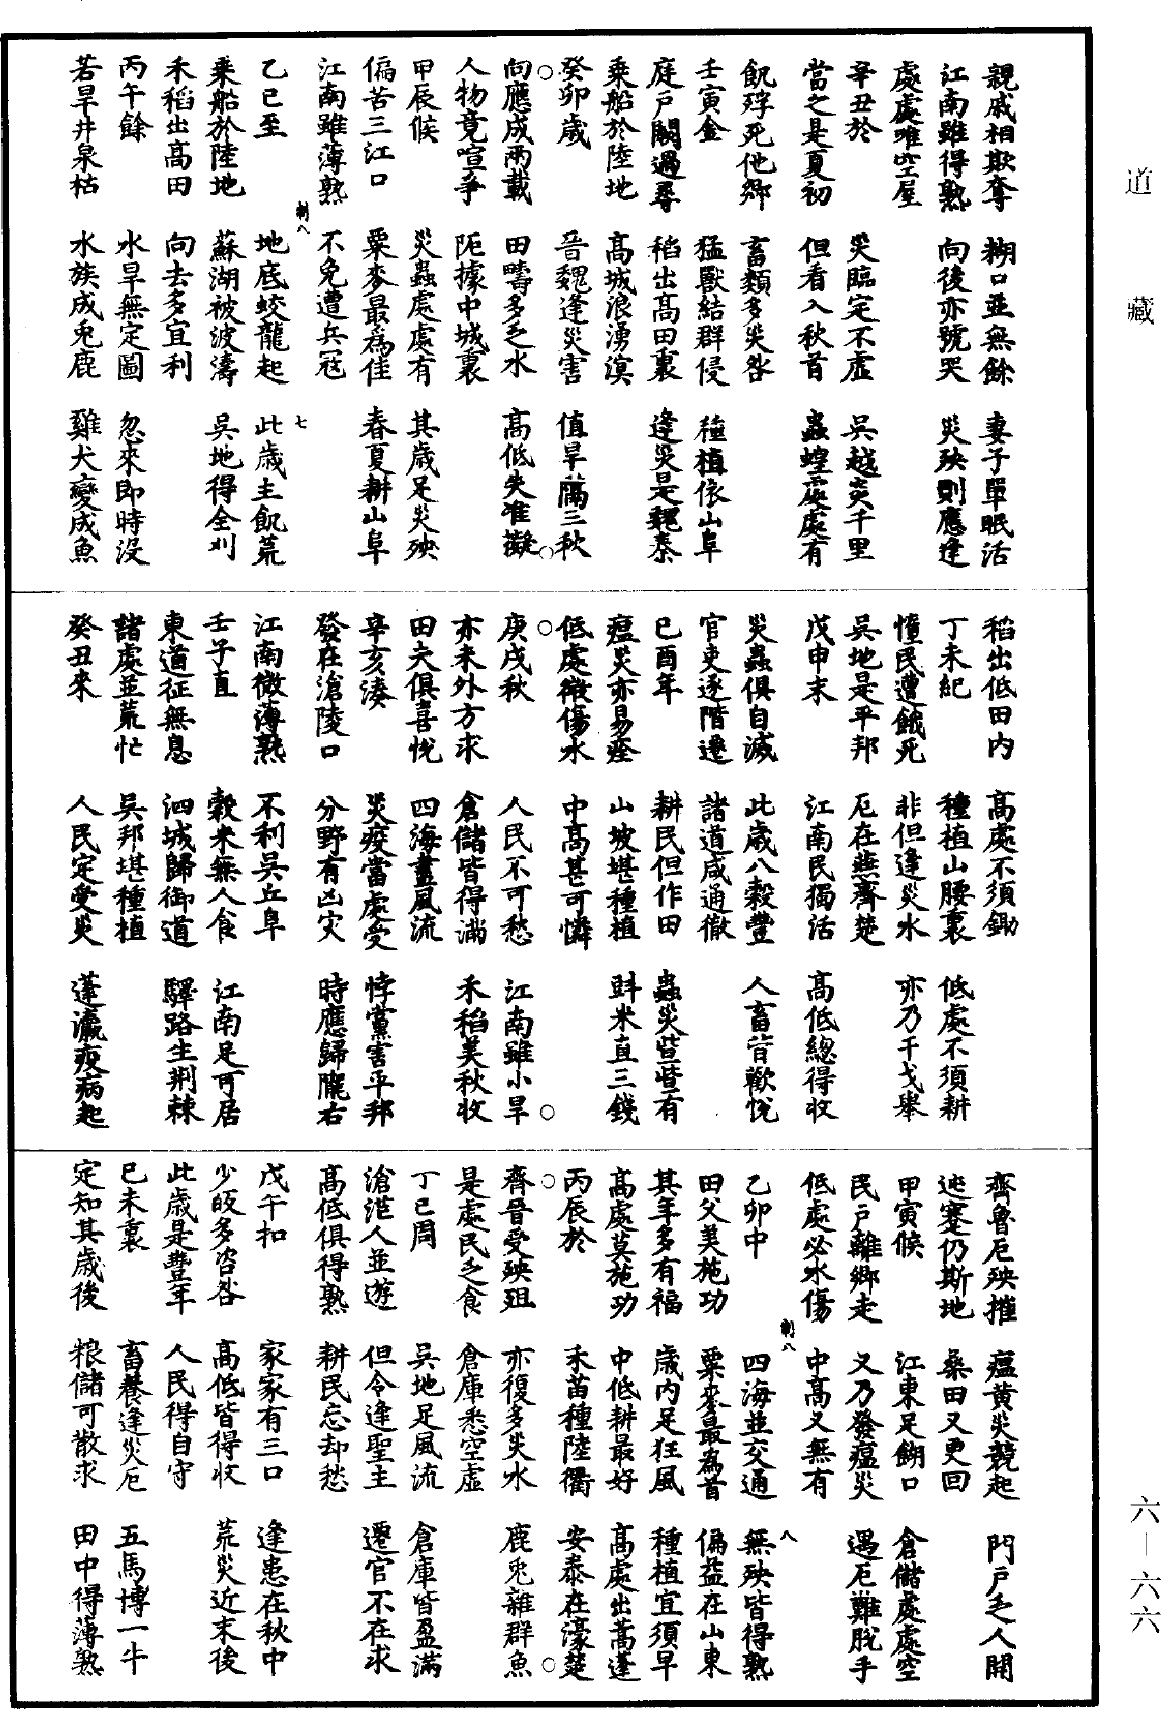 道藏
親戚相欺奪 糊口並無餘 妻子單眠活
江南雖得熟 向後亦號哭 災殃則應逢
處處唯空屋
辛丑於 災臨定不虛 吳越炎千里
當之是夏初 但看入秋首 蟲蝗處處有
飢殍死他鄉 畜類多災咎
壬寅金 猛獸結群侵 種植依山阜
庭戶闕過尋 稻出高田裏 逢災是魏秦
乘船於陸地 高城浪湧溟
癸卯歲 晉魏逢災害 值旱隔三秋
向應成兩載 田疇多乏水 高低失准擬
人物竟喧爭 阨據中城裏
甲辰候 災蟲處處有 其歲足災殃
偏苦三江口 粟麥最爲佳 春夏耕山阜
江南雖薄熟 不免遭兵寇
制八 七
乙巳至 地底蛟龍起 此歲主飢荒
乘船於陸地 蘇湖被波濤 吳地得全刈
禾稻出高田 向去多宜利
丙午餘 水旱無定圖 忽來即時沒
若旱井泉枯 水族成兎鹿 雞犬變成魚
稻出低田內 高處不須鋤
丁未紀 種植山腰裏 低處不須耕
憧民遭餓死 非但逢災水 亦乃干戈舉
吳地是平邦 厄在燕齊楚
戊申末 江南民獨活 高低總得收
災蟲俱自滅 此歲八穀豐 人畜皆歡悅
官吏逐階遷 諸道咸通徹
己酉年 耕民但作田 蟲災些些有
瘟災亦易痊 山坡堪種植 䜴米直三錢
低處微傷水 中高甚可憐
庚戌秋 人民不可愁 江南雖小旱
亦未外方求 倉儲皆得滿 禾稻美秋收
田夫俱喜悅 四海盡風流
辛亥湊 災疫當處受 悖黨害平邦
發在滄陵口 分野有凶灾 時應歸隴右
江南微薄熟 不利吳丘阜
壬子直 穀米無人食 江南足可居
東道征無息 泗城歸御道 驛路生荆棘
諸處並荒忙 吳邦堪種植
癸丑來 人民定受災 蓬瀛疫病起
齊魯厄殃摧 瘟黃災競起 門戶乏人開
迍蹇仍斯地 桑田又更回
甲寅候 江東足餬口 倉儲處處空
民戶離鄉走 又乃發瘟災 遇厄難脫手
低處必水傷 中高又無有
制八 八
乙卯中 四海並交通 無殃皆得熟
田父美施功 粟麥最為首 偏益在山東
其年多有福 歲內足狂風 種植宜須早
高處莫施功 中低耕最好 高處出蒿蓬
丙辰於 禾苗種陸衢 安泰在濠楚
齊晉受殃殂 亦復多災水 鹿兎雜群魚
是處民乏食 倉庫悉空虛
丁巳周 吳地足風流 倉庫皆盈滿
滄茫人並遊 但令逢聖主 遷官不在求
高低俱得熟 耕民忘却愁
戊午扣 家家有三口 逢患在秋中
少皈多咨咎 高低皆得收 荒災近末後
此歲是豐年 人民得自守
已未裏 畜養逢災厄 五馬博一牛
定知其歲後 粮儲可散求 田中得薄熟
六—六六